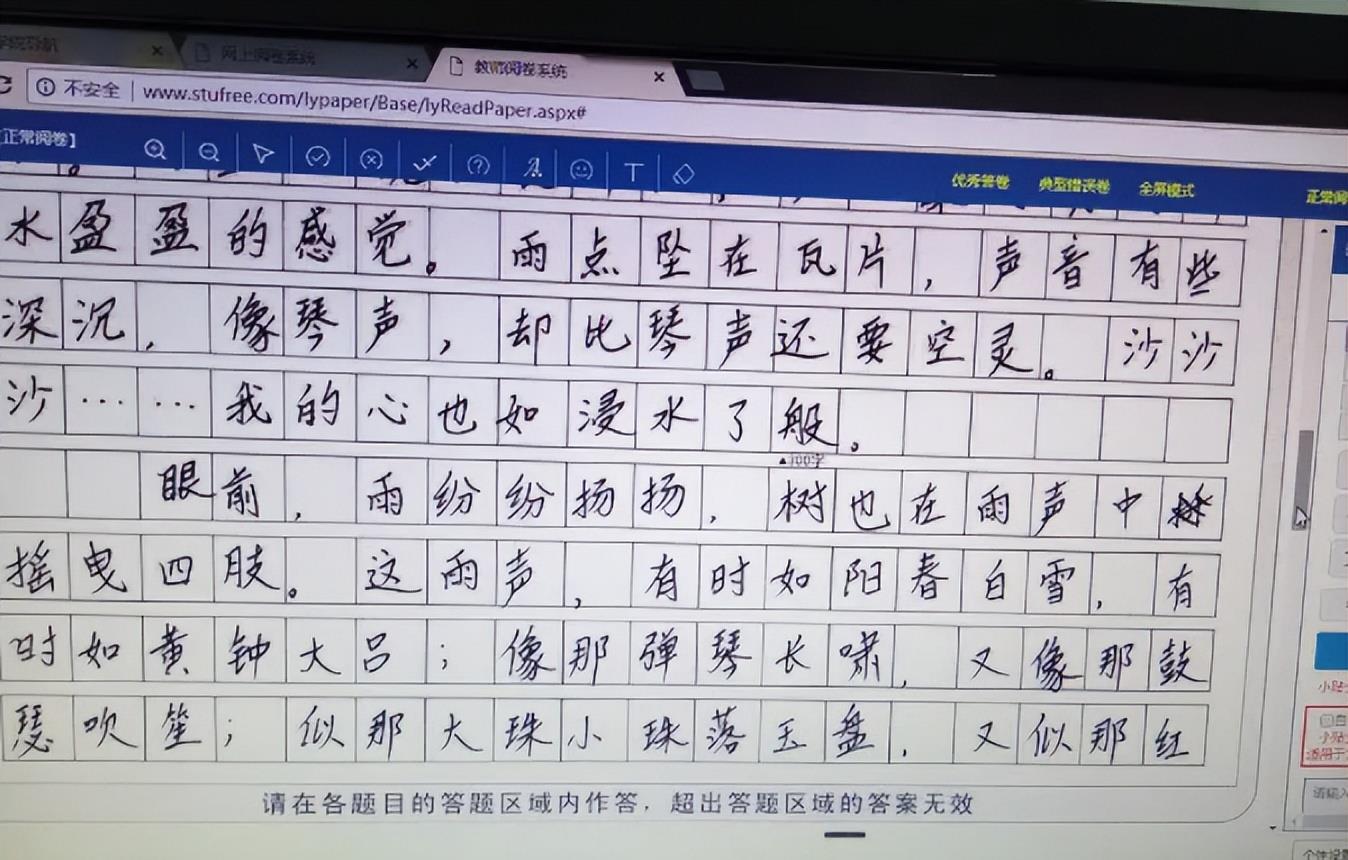 网上阅卷系统
教师阅卷系统
不安全 www.stufree.com/lypaper/Base/lyReadPaper.aspx#
正常阅卷】
优秀答卷 典型错误卷 全屏模式 正常阅
水盈盈的感觉。雨点坠在瓦片,声音有些
深沉,像琴声,却比琴声还要空灵。沙沙
沙……我的心也如浸水了般。
▲100字
眼前,雨纷纷扬扬,树也在雨声中
摇曳四肢。这雨声,有时如阳春白雪,有
时如黄钟大吕;像那弹琴长啸,又像那鼓
瑟吹笙;似那大珠小珠落玉盘,又似那红
请在各题目的答题区域内作答,超出答题区域的答案无效